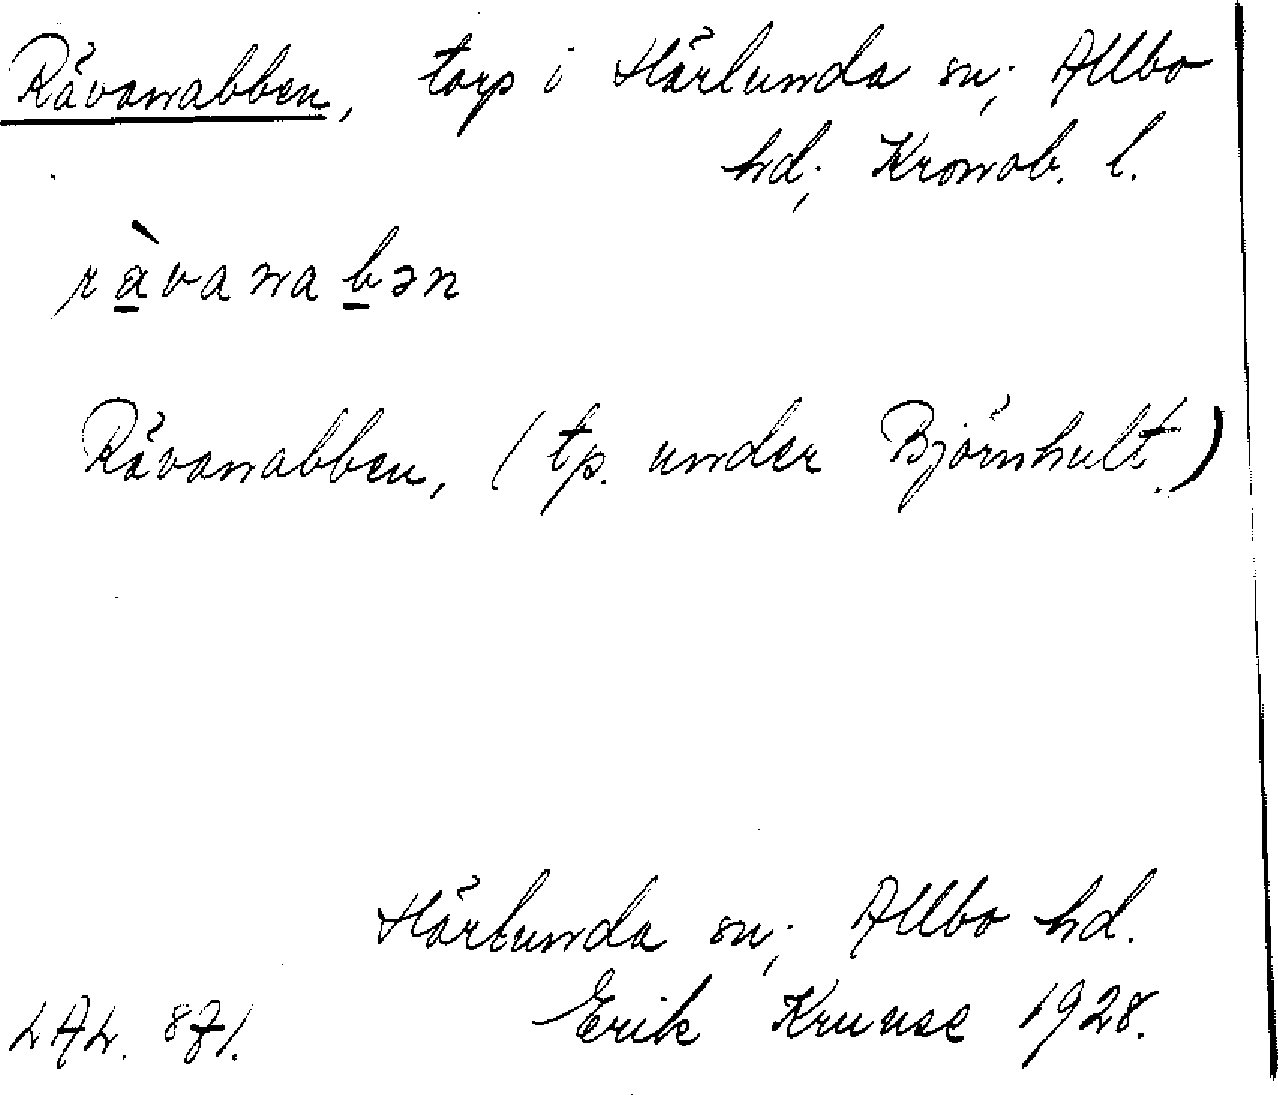 Rävanabben, torp i Härlunda sn; Allbo
hd; Kronob. l.
ràvanabən
Rävanabben, (tp. under Björnhult.)
Härlunda sn; Allbo hd.
LAL. 871. Erik Kruuse 1928.